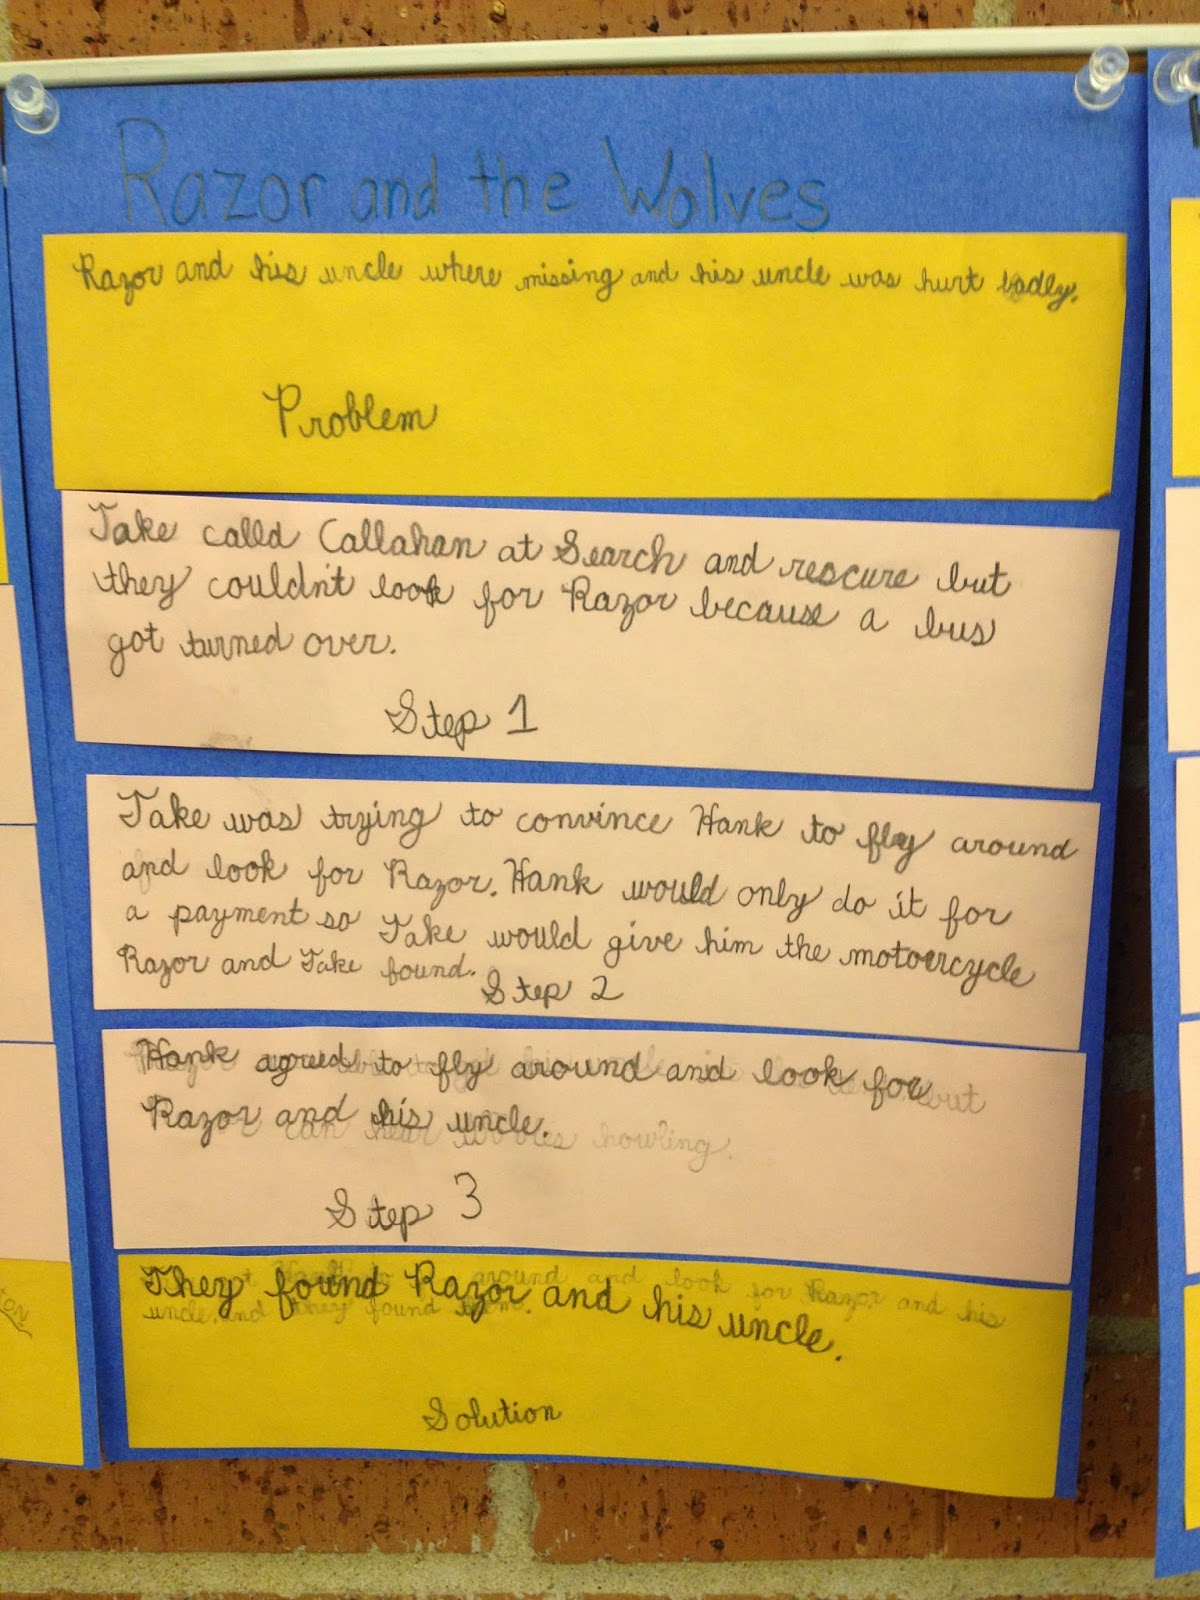 Razor and the Wolves
Razor and his uncle where missing and his uncle was hurt badly.
Problem
Jake calld Callahan at Search and rescure but
they couldn't look for Razor because a bus
got turned over.
Step 1
Jake was trying to convince Hank to fly around
and look for Razor. Hank would only do it for
a payment so Jake would give him the motorcycle
Razor and Jake found.
Step 2
Hank agreed to fly around and look for
Razor and his uncle.
but
can hear wolves howling.
Step 3
They found Razor and his uncle.
around and look for Razor and his
uncle and they found them.
Solution